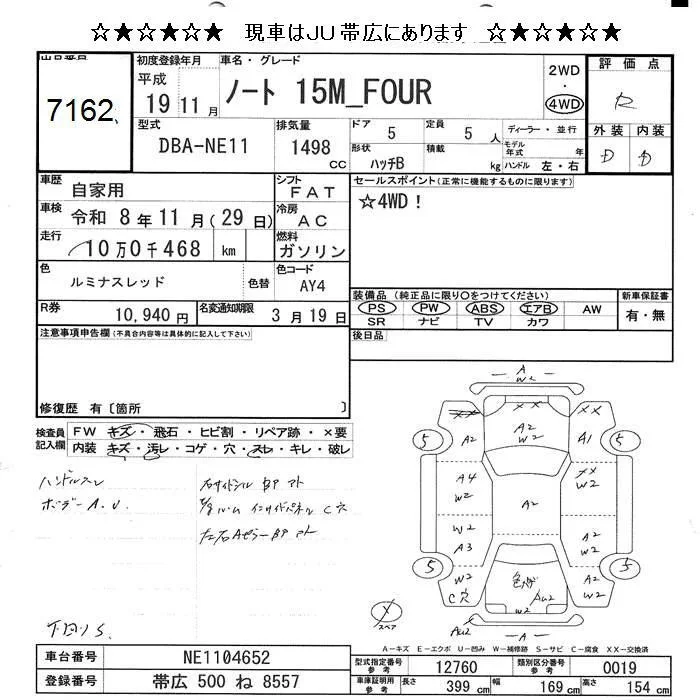 ☆★☆★☆★ 現車はJU帯広にあります ☆★☆★☆★
出品番号 初度登録年月 車名・グレード 2WD・4WD 評価点
7162 平成 19 11月 ノート 15M_FOUR R
型式 排気量 ドア 定員 ディーラー・並行 外装 内装
DBA-NE11 1498 cc 5 5 人 モデル年式 年 D D
形状 積載
ハッチB kg ハンドル 左・右
車歴 自家用 シフト FAT セールスポイント(正常に機能するものに限ります)
車検 令和 8年11月(29日) 冷房 AC ☆4WD！
走行 10万0千468 km 燃料 ガソリン
色 ルミナスレッド 色替 色コード AY4
装備品(純正品に限り○をつけてください) 新車保証書
R券 10,940円 名変通知期限 3月19日 PS PW ABS エアB AW 有・無
SR ナビ TV カワ
注意事項申告欄(不具合内容等は具体的に記入して下さい) 後日品
修復歴 有〔箇所 〕
検査員記入欄 FW キズ・飛石・ヒビ割・リペア跡・×要
内装 キズ・汚レ・コゲ・穴・スレ・キレ・破レ
ハンドルスレ
ボデーA.U.
右サイドシル BP アト
インサイドパネル C穴
左右Aピラー BP アト
下回りS
A
W2
XX XX
5 A2 A2 W2 A1 5
A4 W2 A2 XX W2
W2 A3 A2 W2
5 W2 C穴 色ハゲ AU2 W2 5
スペア AU2 A
A-キズ E-エクボ U-凹み W-補修跡 S-サビ C-腐食 XX-交換済
車台番号 NE1104652 型式指定番号 参考 12760 類別区分番号 参考 0019
登録番号 帯広 500 ね 8557 車庫証明用 参考 長さ 399 cm 幅 169 cm 高さ 154 cm